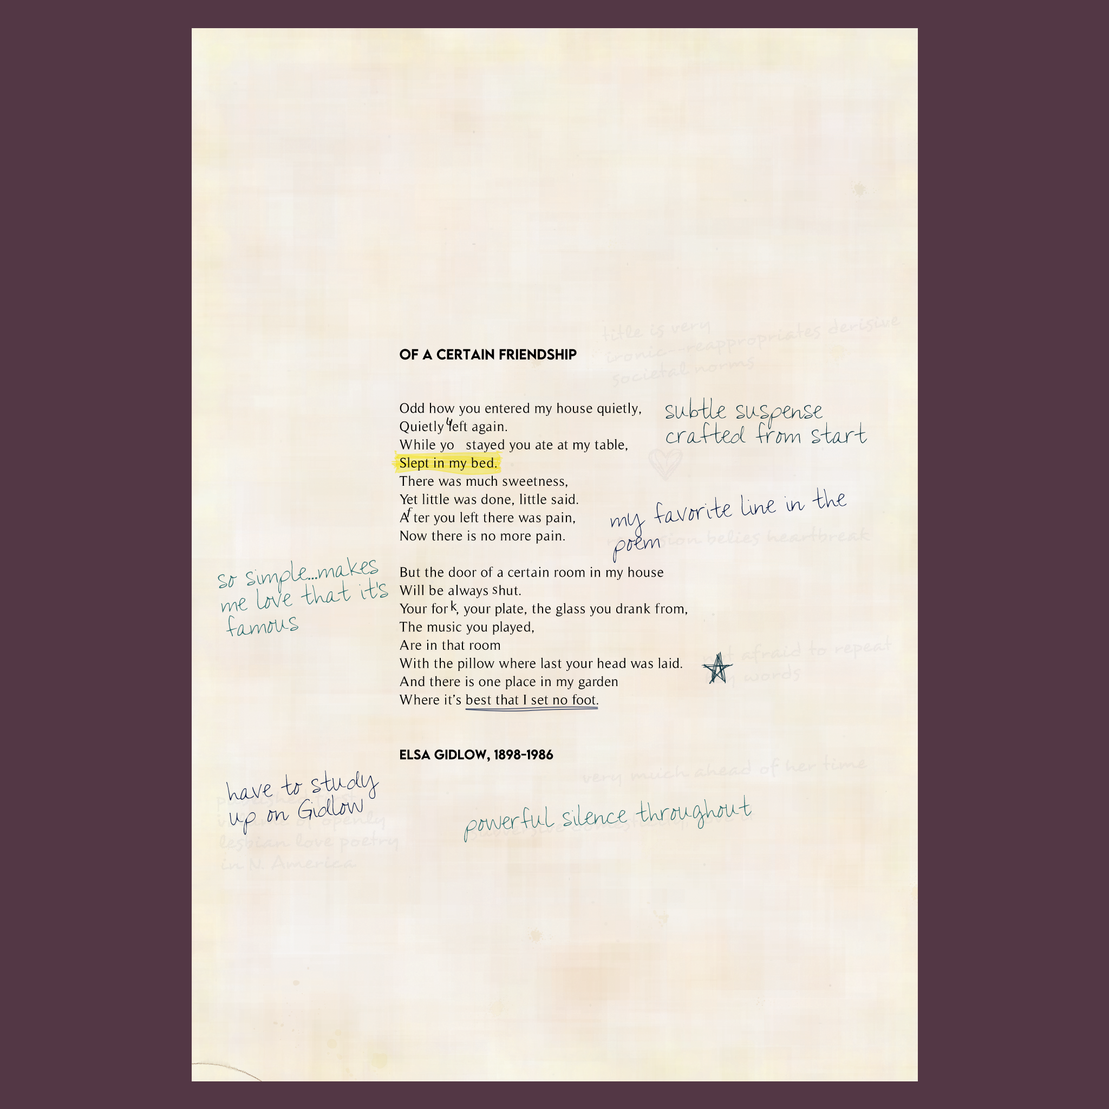 title is very
ironic—reappropriates derisive
societal norms
OF A CERTAIN FRIENDSHIP
Odd how you entered my house quietly,
Quietly left again.
While yo stayed you ate at my table,
Slept in my bed.
There was much sweetness,
Yet little was done, little said.
After you left there was pain,
Now there is no more pain.
subtle suspense
crafted from start
my favorite line in the
poem
belies heartbreak
But the door of a certain room in my house
Will be always shut.
Your fork, your plate, the glass you drank from,
The music you played,
Are in that room
With the pillow where last your head was laid.
And there is one place in my garden
Where it's best that I set no foot.
so simple...makes
me love that it's
famous
afraid to repeat
words
ELSA GIDLOW, 1898-1986
very much ahead of her time
have to study
up on Gidlow
lesbian love poetry
in N. America
powerful silence throughout